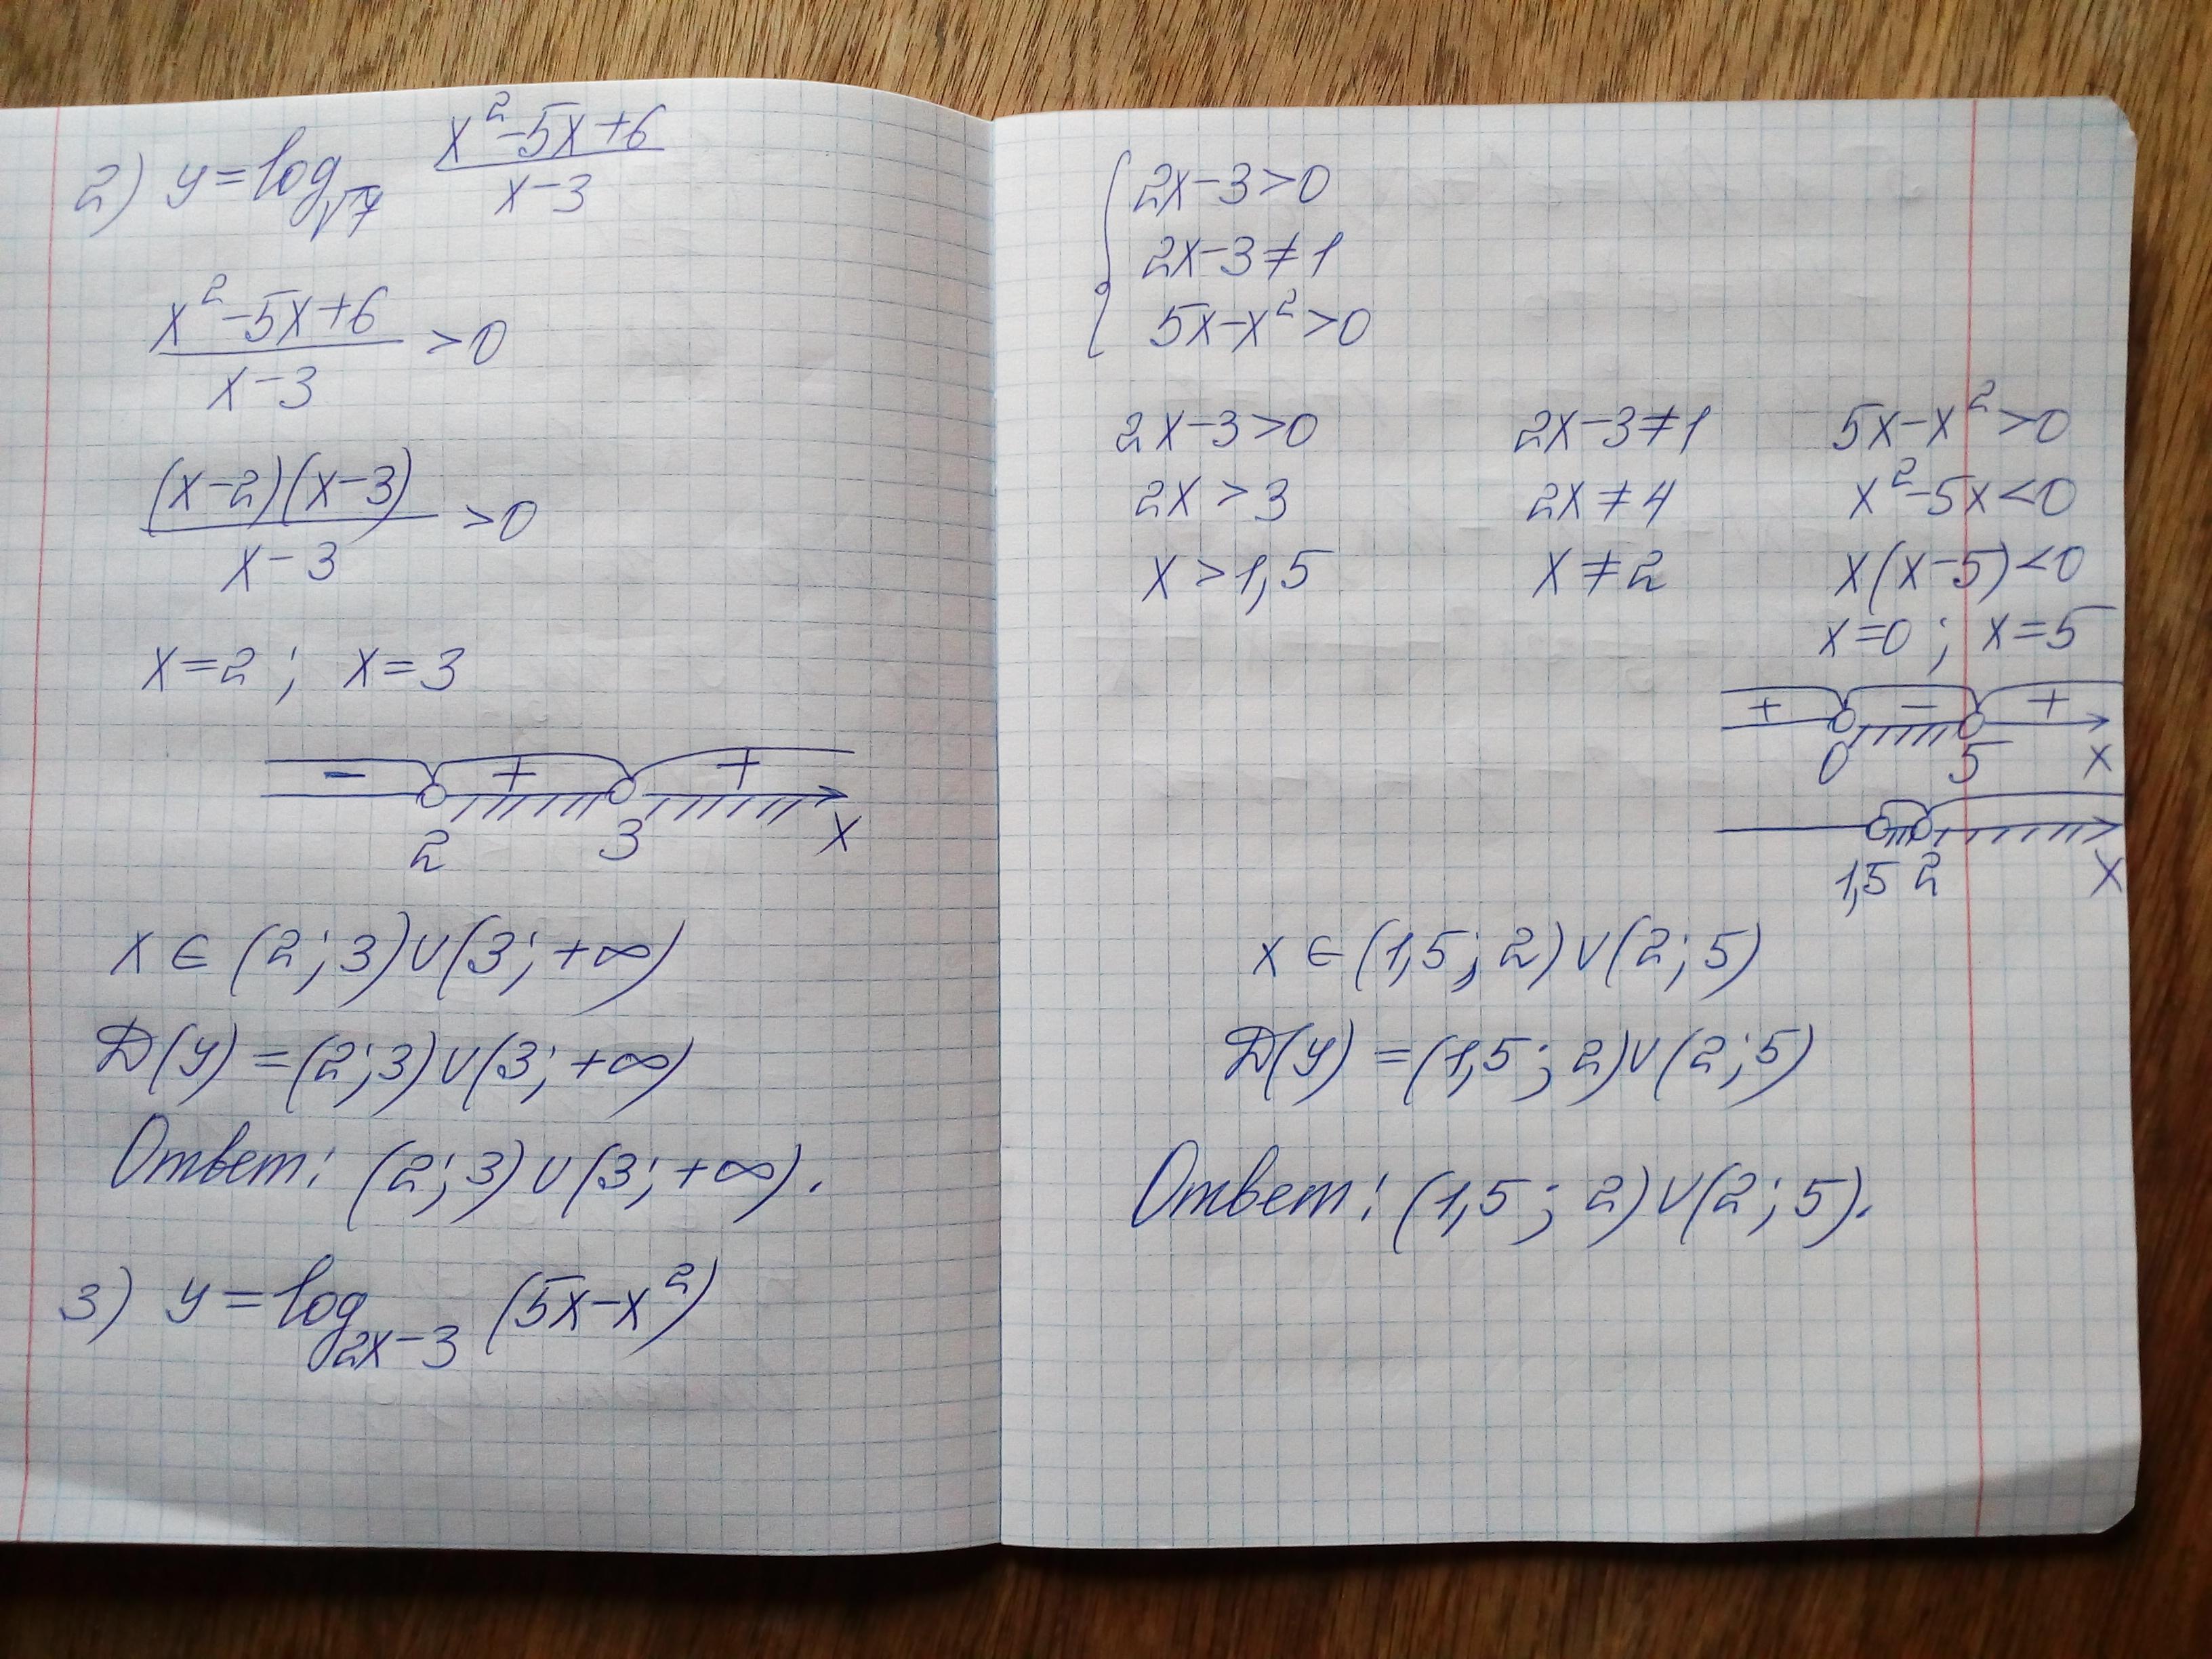 2) y=log_√7 (x²-5x+6)/(x-3)
(x²-5x+6)/(x-3) >0
((x-2)(x-3))/(x-3) >0
x=2; x=3
- + +
2 3 x
x ∈ (2; 3)∪(3; +∞)
D(y)=(2; 3)∪(3; +∞)
Ответ: (2; 3)∪(3; +∞).
3) y=log_{2x-3} (5x-x²)
{ 2x-3>0
2x-3≠1
5x-x²>0
2x-3>0 2x-3≠1 5x-x²>0
2x>3 2x≠4 x²-5x<0
x>1,5 x≠2 x(x-5)<0
x=0; x=5
+ - +
0 5 x
1,5 2 x
x ∈ (1,5; 2)∪(2; 5)
D(y)=(1,5; 2)∪(2; 5)
Ответ: (1,5; 2)∪(2; 5).